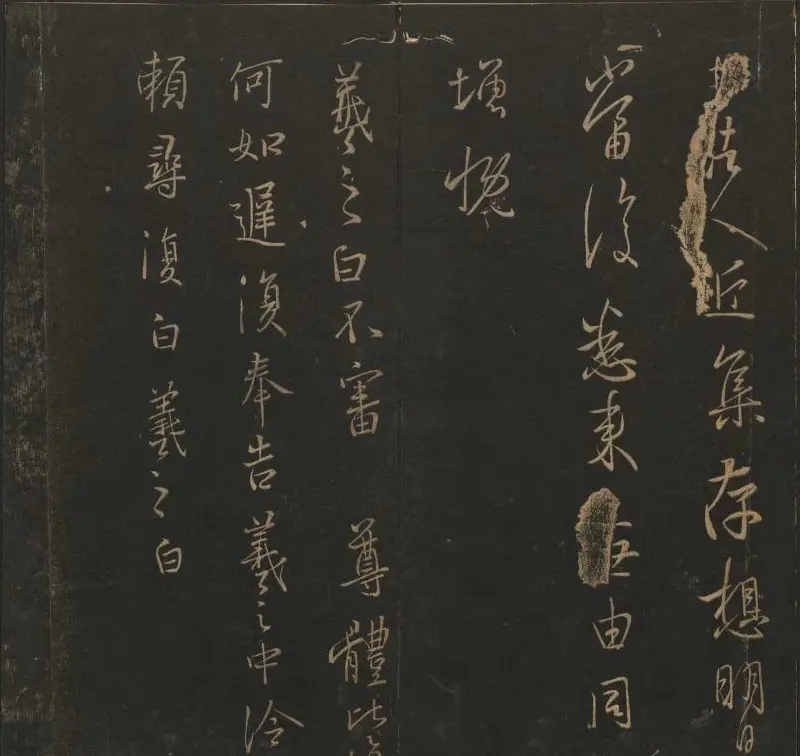 古人近集存想明日
當復悉來無由同
增慨
羲之白不審 尊體比
何如遲復奉告羲之中冷
賴尋復白羲之白